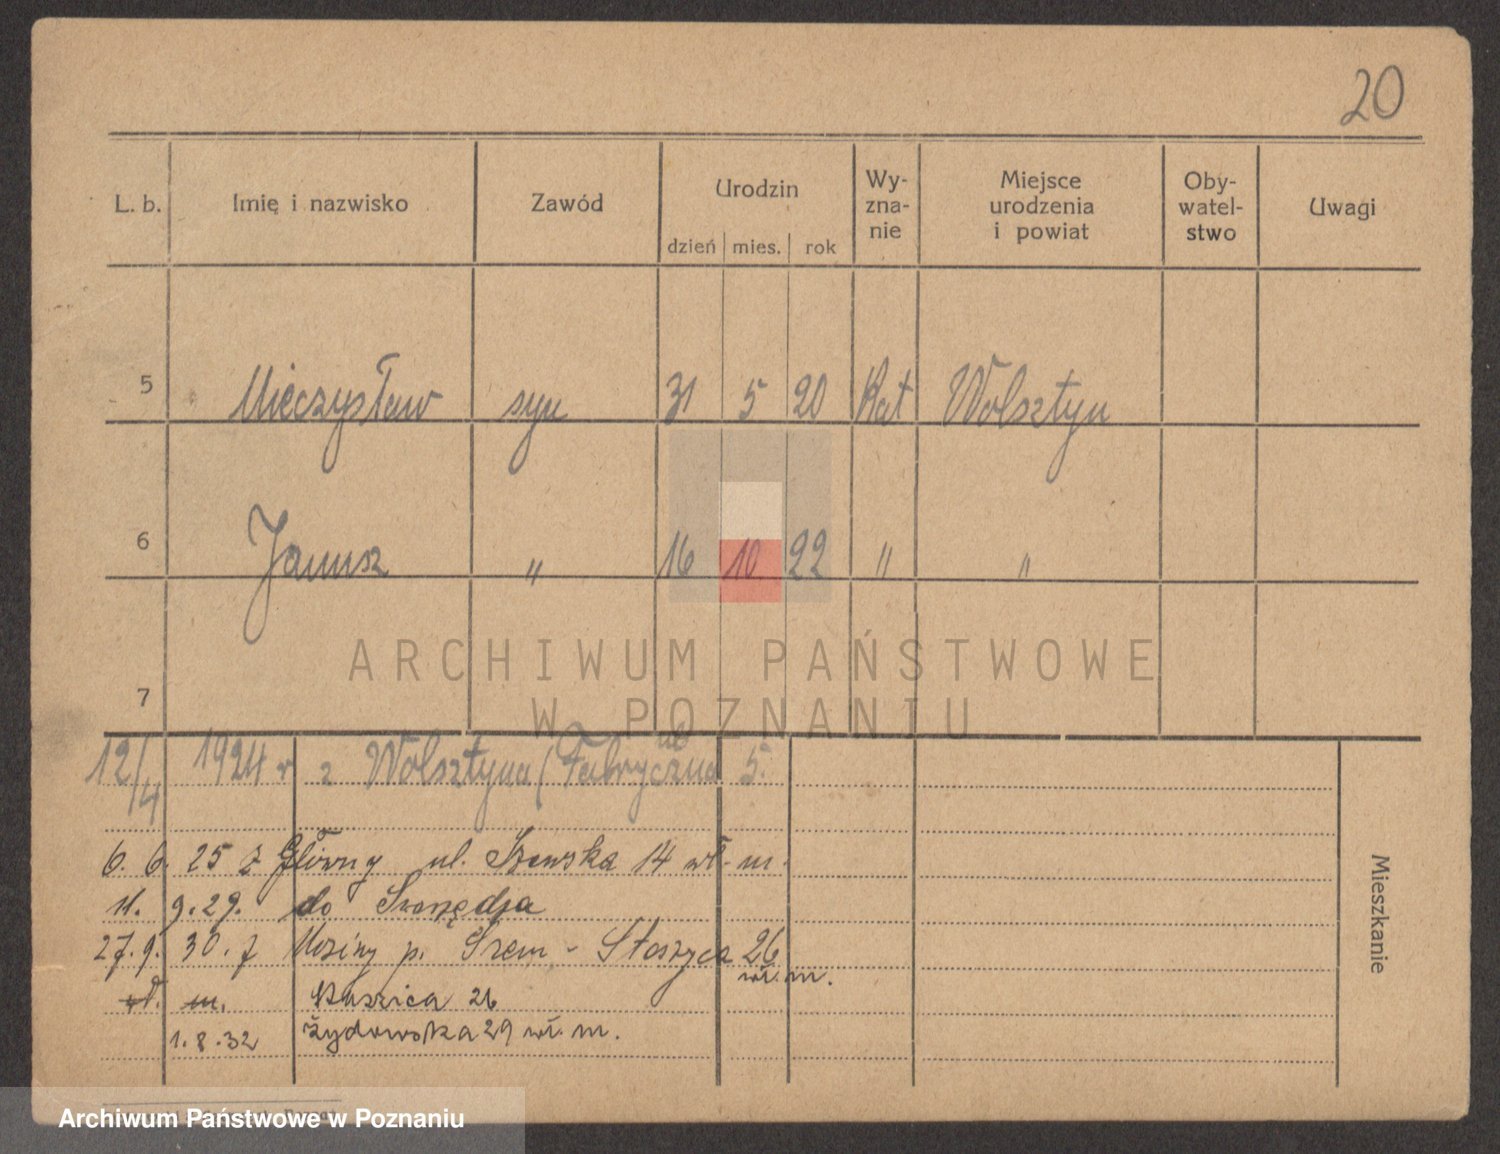 20
L. b. Imię i nazwisko Zawód Urodzin Wy-zna-nie Miejsce urodzenia i powiat Oby-watel-stwo Uwagi
dzień mies. rok
5 Mieczysław syn 31 5 20 Kat Wolsztyn
6 Janusz " 16 10 22 " "
ARCHIWUM PAŃSTWOWE
W POZNANIU
7
12/4 1924 r z Wolsztyna (Fabryczna 5.
6. 6. 25 z Główny ul. Szewska 14 wł. m.
11. 9. 29. do
27. 9. 30. z p. Śrem - 26
wł. m.
wł. m. 26
1. 8. 32 Żydowska 29 wł. m.
Mieszkanie
Archiwum Państwowe w Poznaniu